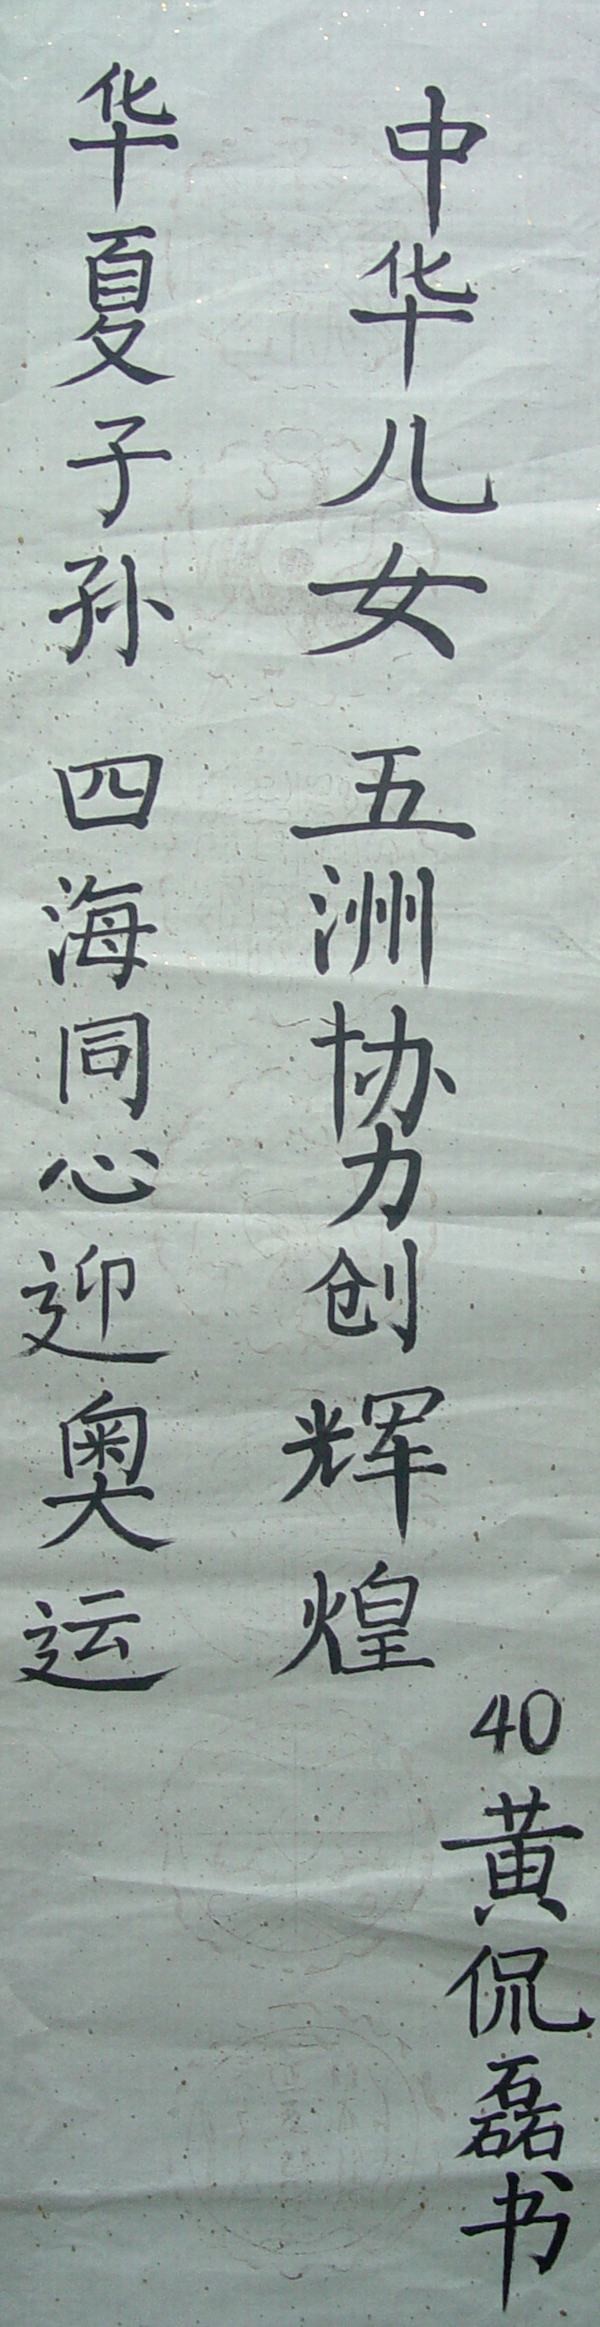 中华儿女 五洲协力创辉煌
华夏子孙 四海同心迎奥运
40黄侃磊书